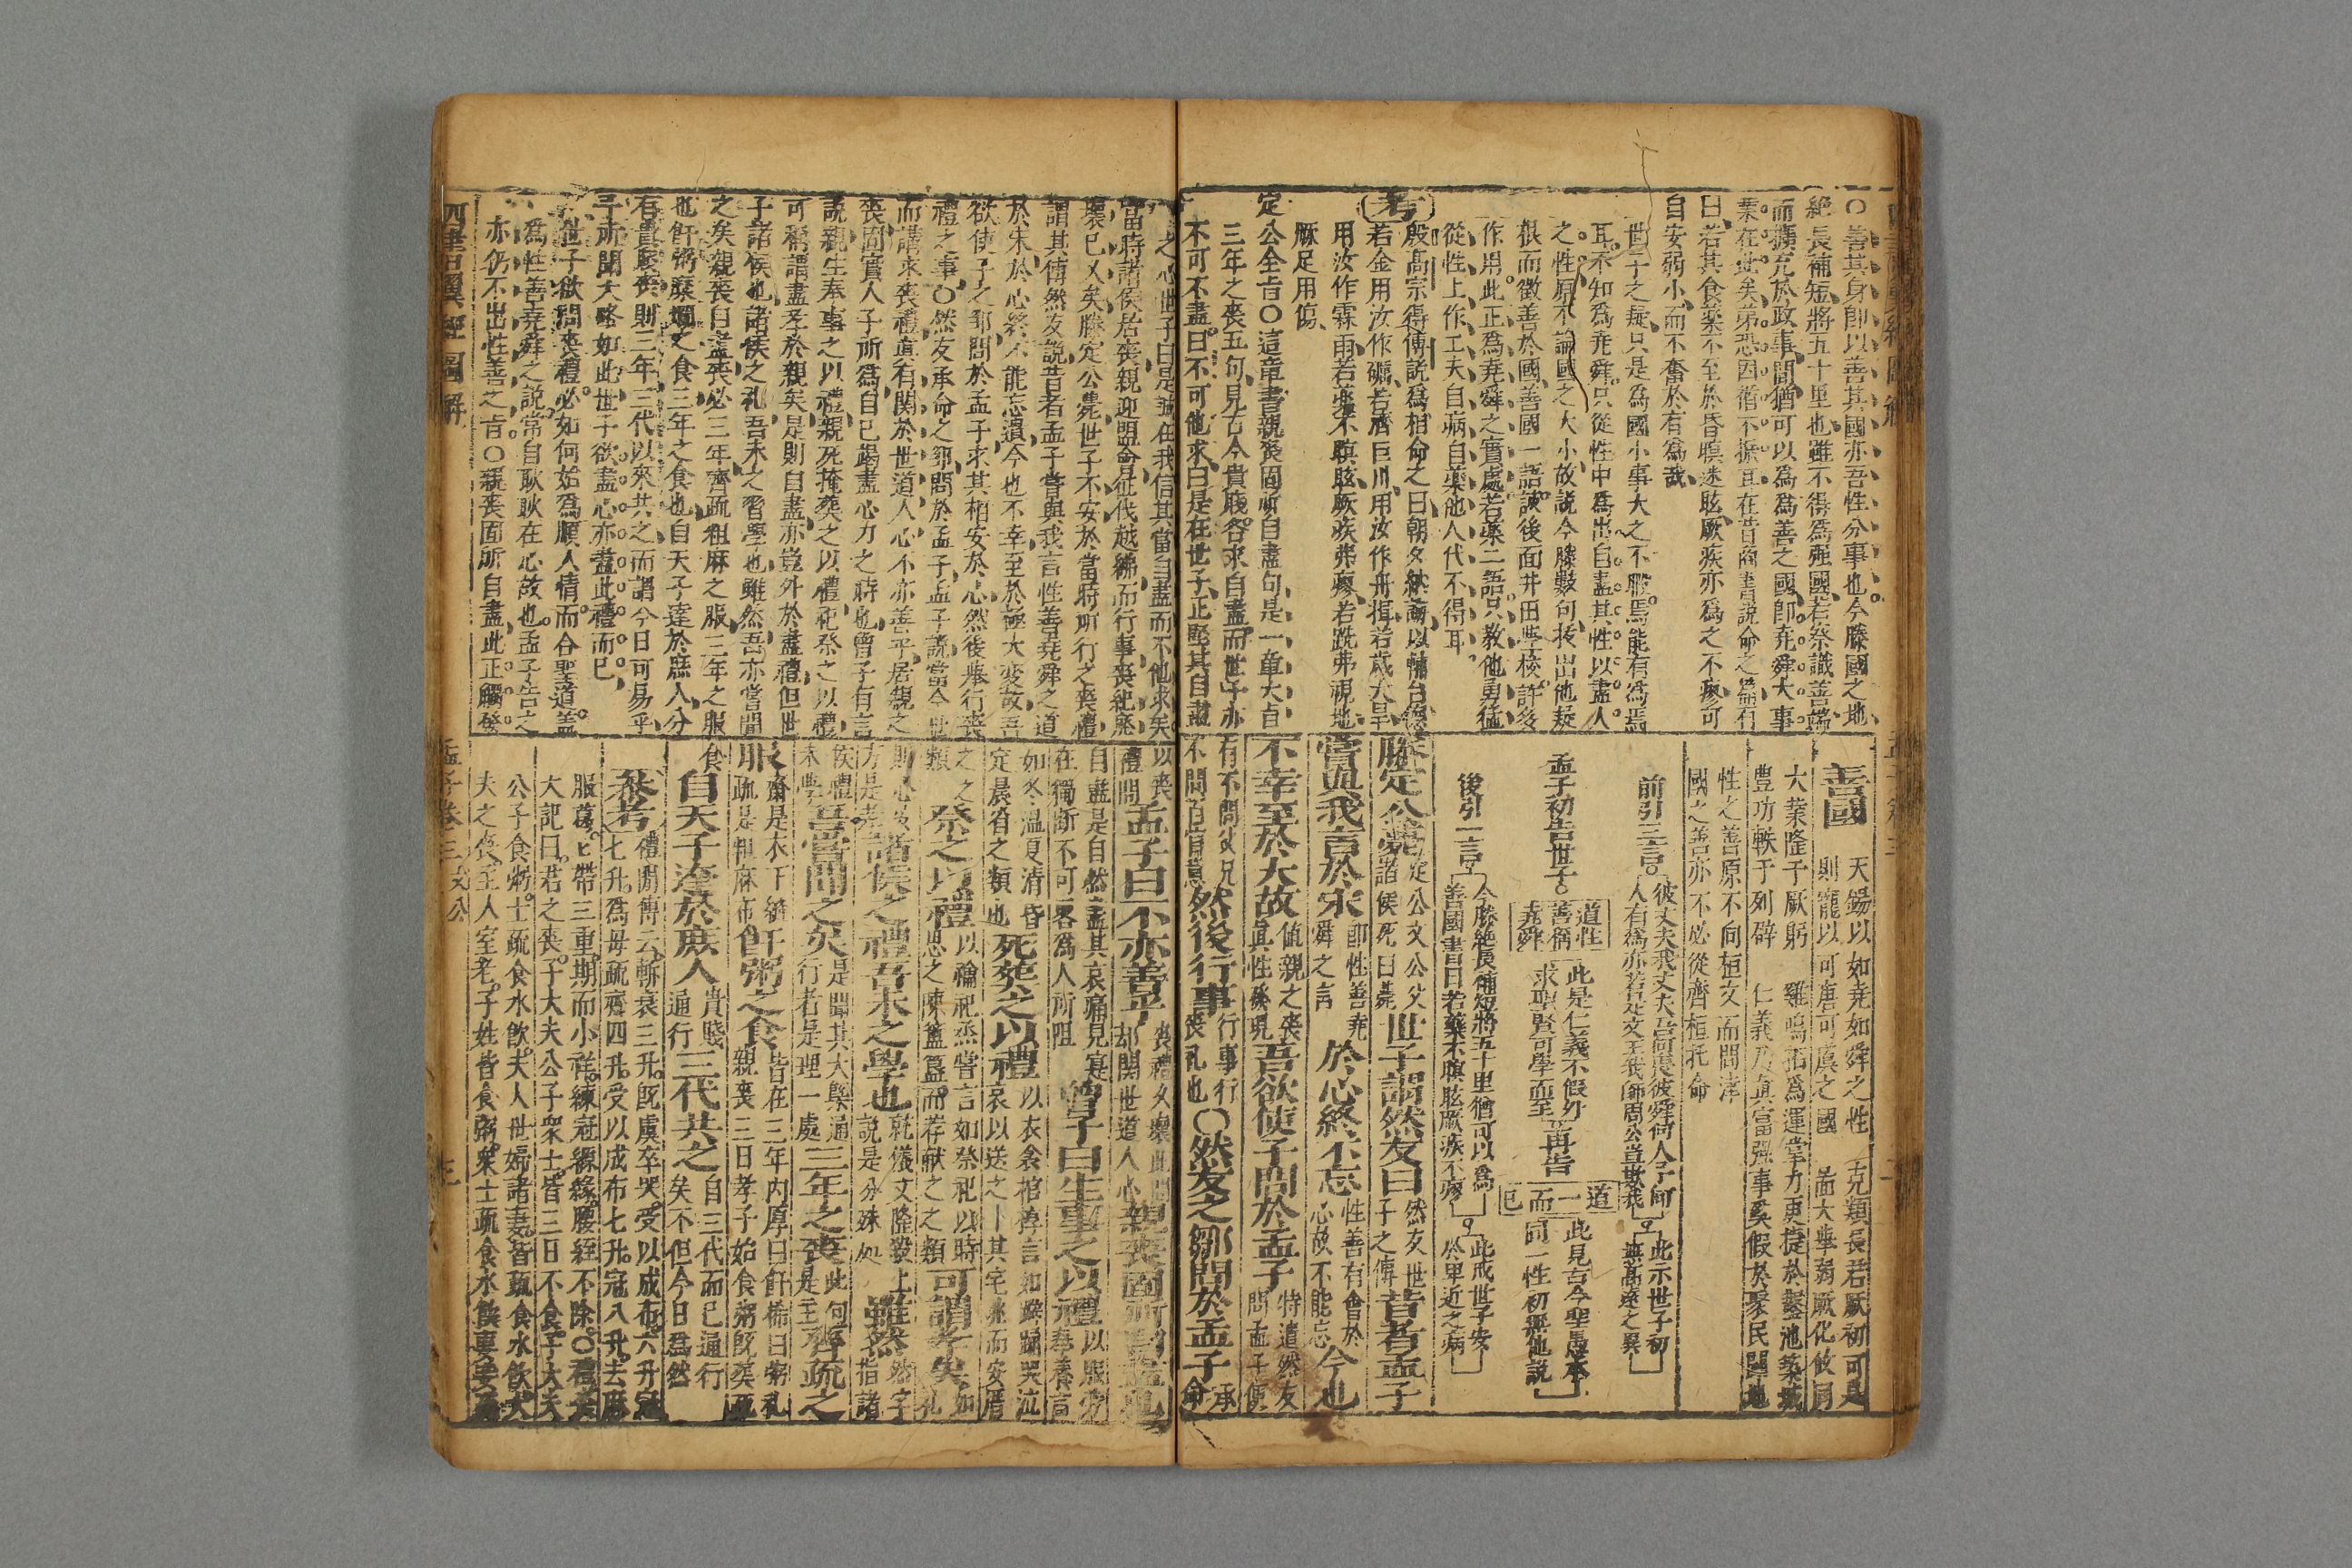 ○善其身卽以善其國亦吾性分事也今滕國之地
絕長補短將五十里也雖不得爲强國若祭識善端
而擴充於政事間猶可以爲爲善之國卽堯舜大事
業在此矣弟恐因循不振耳在昔商書說命之篇有
曰若其食藥不至於昏瞑迷眩厥疾亦爲之不瘳可
自安弱小而不奮於有爲哉
世子之疑只是爲國小事大之不暇焉能有爲焉
耳不知爲堯舜只從性中爲出自盡其性以盡人
之性原不論國之大小故說今滕數句拔出他疑
根而徵善於國善國一語該後面井田學校許多
作用此正爲堯舜之實處若藥二語只教他勇猛
從性上作工夫自病自藥他人代不得耳
考
殷髙宗得傅說爲相命之曰朝夕納誨以輔台德
若金用汝作礪若濟巨川用汝作舟揖若歲大旱
用汝作霖雨若藥不瞑眩厥疾弗瘳若跣弗視地
厥足用傷
定公全旨○這章書親喪固所自盡句是一章大旨
三年之喪五句見古今貴賤容求自盡而世子亦
不可不盡曰不可他求曰是在世子正堅其自盡
善國
天錫以如堯如舜之性
克類長若厥初可是
則寵以可唐可虞之國
大業隆于厥躬
豊功軼于列辟
仁義乃眞富强事奚假於聚民闢地
性之善原不向桓文而問津
國之善亦不必從齊桓托命
前引三言
彼丈夫我丈夫吾何畏彼舜何人予何
人有爲亦若是文王我師周公豈欺我
此示世子初
無髙遠之異
孟子初告世子
道性
善稱
堯舜
此是仁義不假外
求聖賢可學而至
再告
道一而已
此見古今聖愚本
同一性初無他說
後引二言
今滕絕長補短將五十里猶可以爲
善國書曰若藥不瞑眩厥疾不瘳
此戒世子安
於卑近之病
滕定公薨
定公文公父
諸侯死曰薨
世子謂然友曰
然友世
子之傅
昔者孟子
嘗與我言於宋
卽性善堯
舜之言
於心終不忘
性善有會於
心故不能忘
今也
不幸至於大故
值親之喪
眞性發現
吾欲使子問於孟子
特遣然友
問孟子便
有不問父兄
不問百官意
然後行事
行事行
喪礼也
○然友之鄒問於孟子
承
命
之心世子曰是誠在我信其當自盡而不他求矣
當時諸侯居喪親迎盟會征伐越紼而行事喪紀廢
壞已乂矣滕定公薨世子不安於當時所行之喪禮
謂其傅然友說昔者孟子嘗與我言性善堯舜之道
於宋於心終不能忘遺今也不幸至於極大變故吾
欲使子之鄒問於孟子求其相安於心然後舉行喪
禮之事○然友承命之鄒問於孟子孟子說當今世
而講求喪禮眞有関於世道人心不亦善乎居親之
喪固實人子所爲自己竭盡心力之時也曾子有言
說親生奉事之以禮親死掩葬之以禮祀祭之以禮
可稱謂盡孝於親矣是則自盡亦豈外於盡禮但世
子諸侯也諸侯之礼吾未之習學也雖然吾亦嘗聞
之矣親喪曰盡喪必三年齊疏粗麻之服三年之服
也飦粥糜爛之食三年之食也自天子達於庶人分
有貴賤喪則三年三代以來共之而謂今日可易乎
予所聞大略如此世子欲盡心亦盡此禮而已
世子欲問喪禮必如何始爲順人情而合聖道葢
爲性善堯舜之說常自耿耿在心故也孟子告之
亦仍不出性善之旨○親喪固所自盡此正觸發
以喪
禮問
孟子曰不亦善乎
喪禮久壞此問
却関世道人心
親喪固所自盡也
自盡是自然盡其哀痛見寔
在獨斷不可畧爲人所阻
曾子曰生事之以禮
以服勞
奉養言
如冬溫夏凊昏
定晨省之類也
死葬之以禮
以衣衾棺槨言如擗踊哭泣
哀以送之卜其宅兆而安厝
之之
類
祭之以禮
以禴祀烝嘗言如祭祀以時
思之陳簋簠而荐献之之類
可謂孝矣
諸侯之禮吾未之學也
就儀文隆殺上
說是分殊処
雖然
然字
指諸
侯禮
未學
吾嘗聞之矣
是聞其大槩通
行者是理一處
三年之喪
此句
是主
齊疏之
服
齊是衣下縫
疏是粗麻布
飦粥之食
皆在三年內厚曰飦稀曰粥礼
親喪三日孝子始食粥旣葬疏
食
自天子達於庶人
貴賤
通行
三代共之
自三代而已通行
矣不但今日爲然
叅考
禮間傳云斬衰三升旣虞卒哭受以成布六升冠
七升爲母疏齊四升受以成布七升冠八升去麻
服葛葛帶三重期而小祥練冠縓緣腰絰不除○禮喪
大記曰君之喪子大夫公子衆士皆三日不食子大夫
公子食粥士疏食水飲夫人世婦諸妻皆疏食水飲大
夫之喪主人室老子姓皆食粥衆士疏食水飲妻妾疏
四書翼經圖解
孟子卷三文公